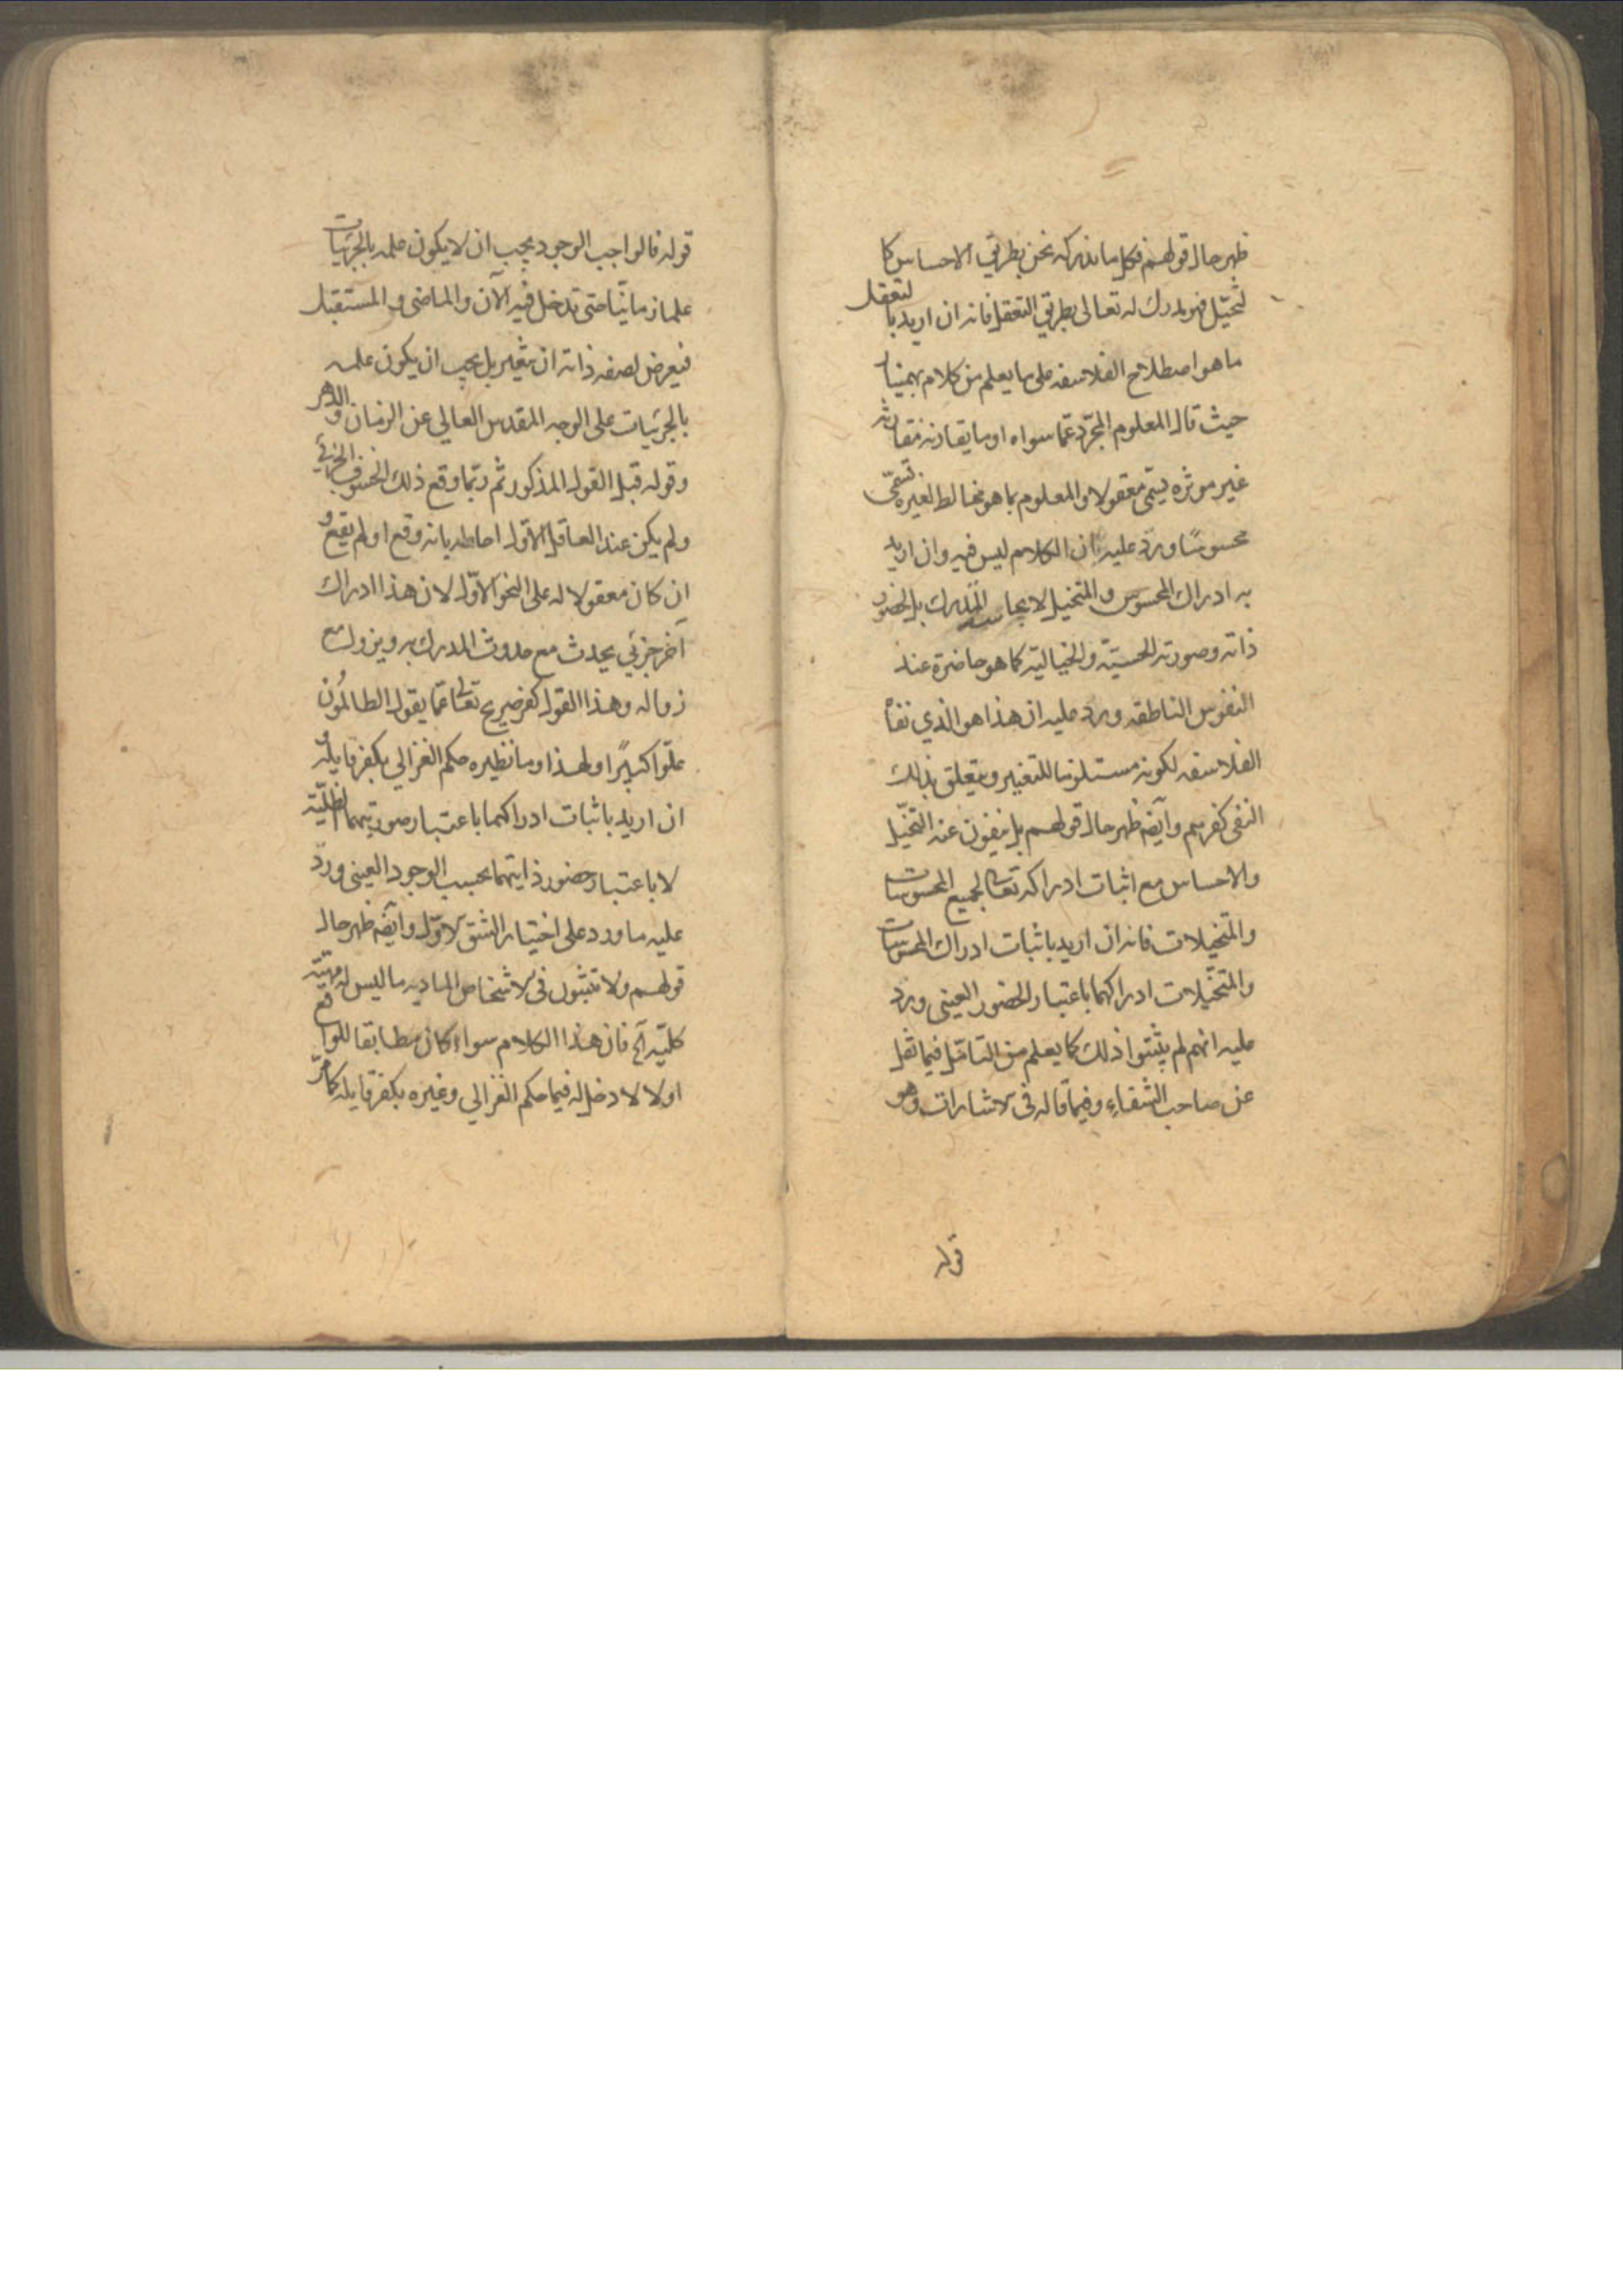 ظهر حال قولهم فكل ما ندركه نحن بطريق الاحساس كا
لتخيّل فهو مدرك له تعالى بطريق التعقل فانه ان اريد با لتعقل
ما هو اصطلاح الفلاسفه على ما يعلم من كلام بهمنيار
حيث قال المعلوم المجرّد عمّا سواه او ما يقارنه مقارنه
غير موثره يسمّى معقولا والمعلوم بما هو مخالط لغيره تسمّى
محسوسًا ورد عليه ان الكلام ليس فيه وان اريد
به ادراك المحسوس والمتخيل لا بحاسه المدرك بل بحضور
ذاته وصورته الحسيّة والخيالية كما هو حاضرة عند
النفوس الناطقه ورد عليه ان هذا هو الذي نفاه
الفلاسفه لكونه مستلزما للتغيير ويتعلق بذلك
النفى كفرهم وآيضه ظهر حال قولهم بل ينفون عنه التخيّل
والاحساس مع اثبات ادراكه تعالى لجميع المحسوسات
والمتخيلات فانه ان اريد باثبات ادراك المحسوسات
والمتخيّلات ادراكهما باعتبار الحضور العينى ورد
عليه انهم لم يثبتوا ذلك كما يعلم من التامّل فيما نقل
عن صاحب الشفاء وفيما قاله فى الاشارات وهو
قوله
قوله فالواجب الوجود يجب ان لا يكون علمه بالجزئيات
علما زمانيّا حتى تدخل فيه الآن والماضى والمستقبل
فيعرض لصفه ذاته ان يتغير بل يجب ان يكون علمه
بالجزئيات على الوجه المقدس العالي عن الزمان و الدهر
وقوله قبل القول المذكور ثم ربّما وقع ذلك الخسوف الجزئي
ولم يكن عند العاقل الاوّل احاطه بانه وقع او لم يقع و
ان كان معقولا له على النحو الاوّل لان هذا ادراك
آخر جزئي يحدث مع حدوث المدرك به ويزول مع
زواله وهذا القول كفر صريح تعالى عمّا يقول الظالمون
علوّا كبيرًا ولهذا وما نظيره حكم الغزالي بكفر قايله و
ان اريد باثبات ادراكهما باعتبار صورتيهما الظليّة
لا باعتبار حضور ذاتيهما بحسب الوجود العينى ورد
عليه ما ورد على اختيار الشق الاوّل وآيضه ظهر حال
قولهم ولا تثبتون فى الاشخاص الماديه ما ليس له مهيّة
كليّه آلخ فان هذا الكلام سواء كان مطابقا للواقع
اولا لا دخل له فيما حكم الغزالي وغيره بكفر قايله كما مرّ